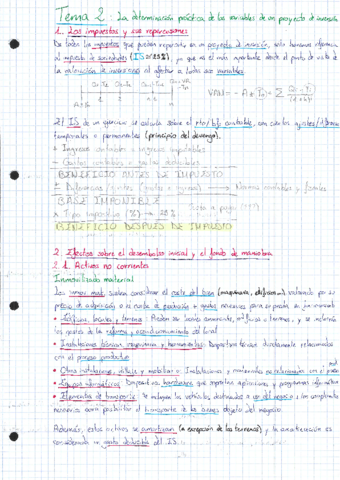 Tema 2: La determinación práctica de las variables de un proyecto de inversión
1. Los impuestos y sus repercusiones
De todos los impuestos que pueden repercutir en un proyecto de inversión, solo haremos referencia
al impuesto de sociedades (IS 25%), ya que es el más importante desde el punto de vista de
la valoración de inversiones al afectar a todas sus variables.
El IS de un ejercicio se calcula sobre el rto/bº contable, con ciertos ajustes
temporales o permanentes (principio del devengo).
+ Ingresos contables o ingresos imputables
- Gastos contables o gastos deducibles
BENEFICIO ANTES DE IMPUESTO
± Diferencias/ajustes (gastos e ingresos) → Normas contables y fiscales
BASE IMPONIBLE
x Tipo impositivo (%) → 25%
BENEFICIO DESPUÉS DE IMPUESTO
2. Efectos sobre el desembolso inicial y el fondo de maniobra
2.1. Activos no corrientes
Inmovilizado material
Los inmov. mat. suelen constituir el coste del bien (maquinaria, edificios...) valorando por su
precio de adquisición o su coste de producción + gastos necesarios para su puesta en funcionamiento
• Edificios, locales y terrenos: Pueden ser locales comerciales, edificios o terrenos, y se incluirán
los gastos de reforma y acondicionamiento del local
• Instalaciones técnicas, maquinaria y herramientas: Dispositivos técnicos directamente relacionados
con el proceso productivo
• Otras instalaciones, utillaje y mobiliario: Instalaciones y materiales no relacionados con el proceso
• Equipos informáticos: Dispositivos hardware que soportan aplicaciones y programas informáticos
• Elementos de transporte: Se incluyen los vehículos destinados a uso del negocio
necesarios como posibilitar el transporte de la carga objeto del negocio.
Además, estos activos se amortizan (a excepción de los terrenos) y la amortización es
considerada un gasto deducible del IS.